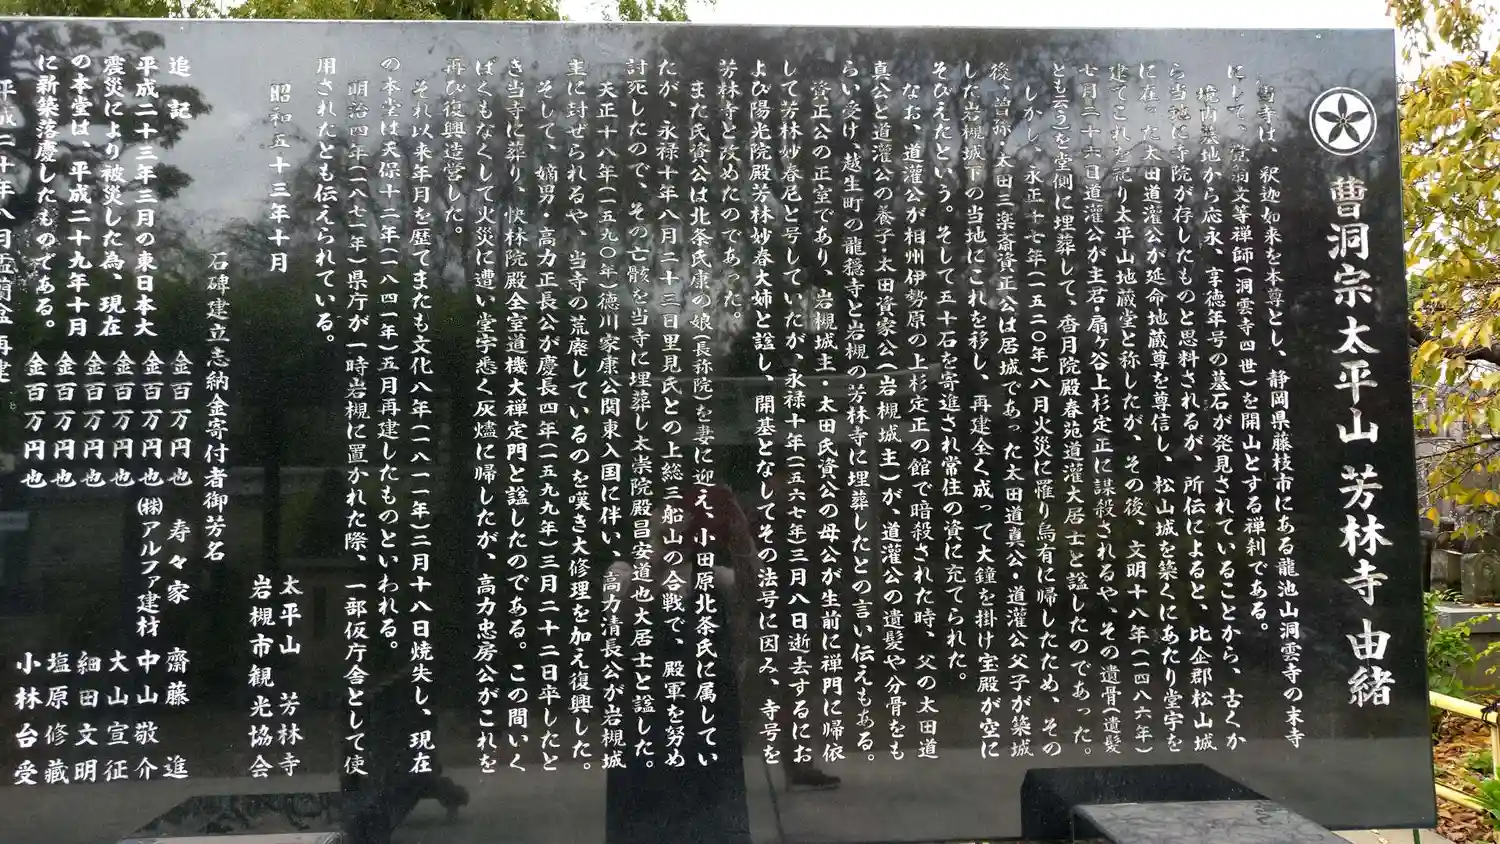 曹洞宗太平山 芳林寺 由緒
当寺は、釈迦如来を本尊とし、静岡県藤枝市にある龍池山洞雲寺の末寺
にして、覚翁文等禅師(洞雲寺四世)を開山とする禅刹である。
境内墓地から応永、享徳年号の墓石が発見されていることから、古くか
ら当地に寺院が存したものと思料されるが、所伝によると、比企郡松山城
に在った太田道灌公が延命地蔵尊を尊信し、松山城を築くにあたり堂宇を
建てこれを祀り太平山地蔵堂と称したが、その後、文明十八年(一四八六年)
七月二十六日道灌公が主君・扇ヶ谷上杉定正に謀殺されるや、その遺骨(遺髪
とも云う)を堂側に埋葬して、香月院殿春苑道灌大居士と諡したのであった。
しかし、永正十七年(一五二〇年)八月火災に罹り烏有に帰したため、その
後、曽孫・太田三楽斎資正公は居城であった太田道真公・道灌公父子が築城
した岩槻城下の当地にこれを移し、再建全く成って大鐘を掛け宝殿が空に
そびえたという。そして五十石を寄進され常住の資に充てられた。
なお、道灌公が相州伊勢原の上杉定正の館で暗殺された時、父の太田道
真公と道灌公の養子・太田資家公(岩槻城主)が、道灌公の遺髪や分骨をも
らい受け、越生町の龍穏寺と岩槻の芳林寺に埋葬したとの言い伝えもある。
資正公の正室であり、岩槻城主・太田氏資公の母公が生前に禅門に帰依
して芳林妙春尼と号していたが、永禄十年(一五六七年)三月八日逝去するにお
よび陽光院殿芳林妙春大姉と諡し、開基となしてその法号に因み、寺号を
芳林寺と改めたのであった。
また氏資公は北条氏康の娘(長林院)を妻に迎え、小田原北条氏に属してい
たが、永禄十年八月二十三日里見氏との上総三船山の合戦で、殿軍を努め
討死したので、その亡骸を当寺に埋葬し太崇院殿昌安道也大居士と諡した。
天正十八年(一五九〇年)徳川家康公関東入国に伴い、高力清長公が岩槻城
主に封ぜられるや、当寺の荒廃しているのを嘆き大修理を加え復興した。
そして、嫡男・高力正長公が慶長四年(一五九九年)三月二十二日卒したと
き当寺に葬り、快林院殿全室道機大禅定門と諡したのである。この間いく
ばくもなくして火災に遭い堂宇悉く灰燼に帰したが、高力忠房公がこれを
再び復興造営した。
それ以来年月を歴てまたも文化八年(一八一一年)二月十八日焼失し、現在
の本堂は天保十二年(一八四一年)五月再建したものといわれる。
明治四年(一八七一年)県庁が一時岩槻に置かれた際、一部仮庁舎として使
用されたとも伝えられている。
昭和五十三年十月
太平山 芳林寺
岩槻市観光協会
石碑建立志納金寄付者御芳名
金百万円也 寿々家 齋藤 進
金百万円也 (株)アルファ建材 中山敬介
金百万円也 大山宣征
金百万円也 細田文明
金百万円也 塩原修蔵
金百万円也 小林台受
追記
平成二十三年三月の東日本大
震災により被災した為、現在
の本堂は、平成二十九年十月
に新築落慶したものである。
平成三十年八月盂蘭盆再建